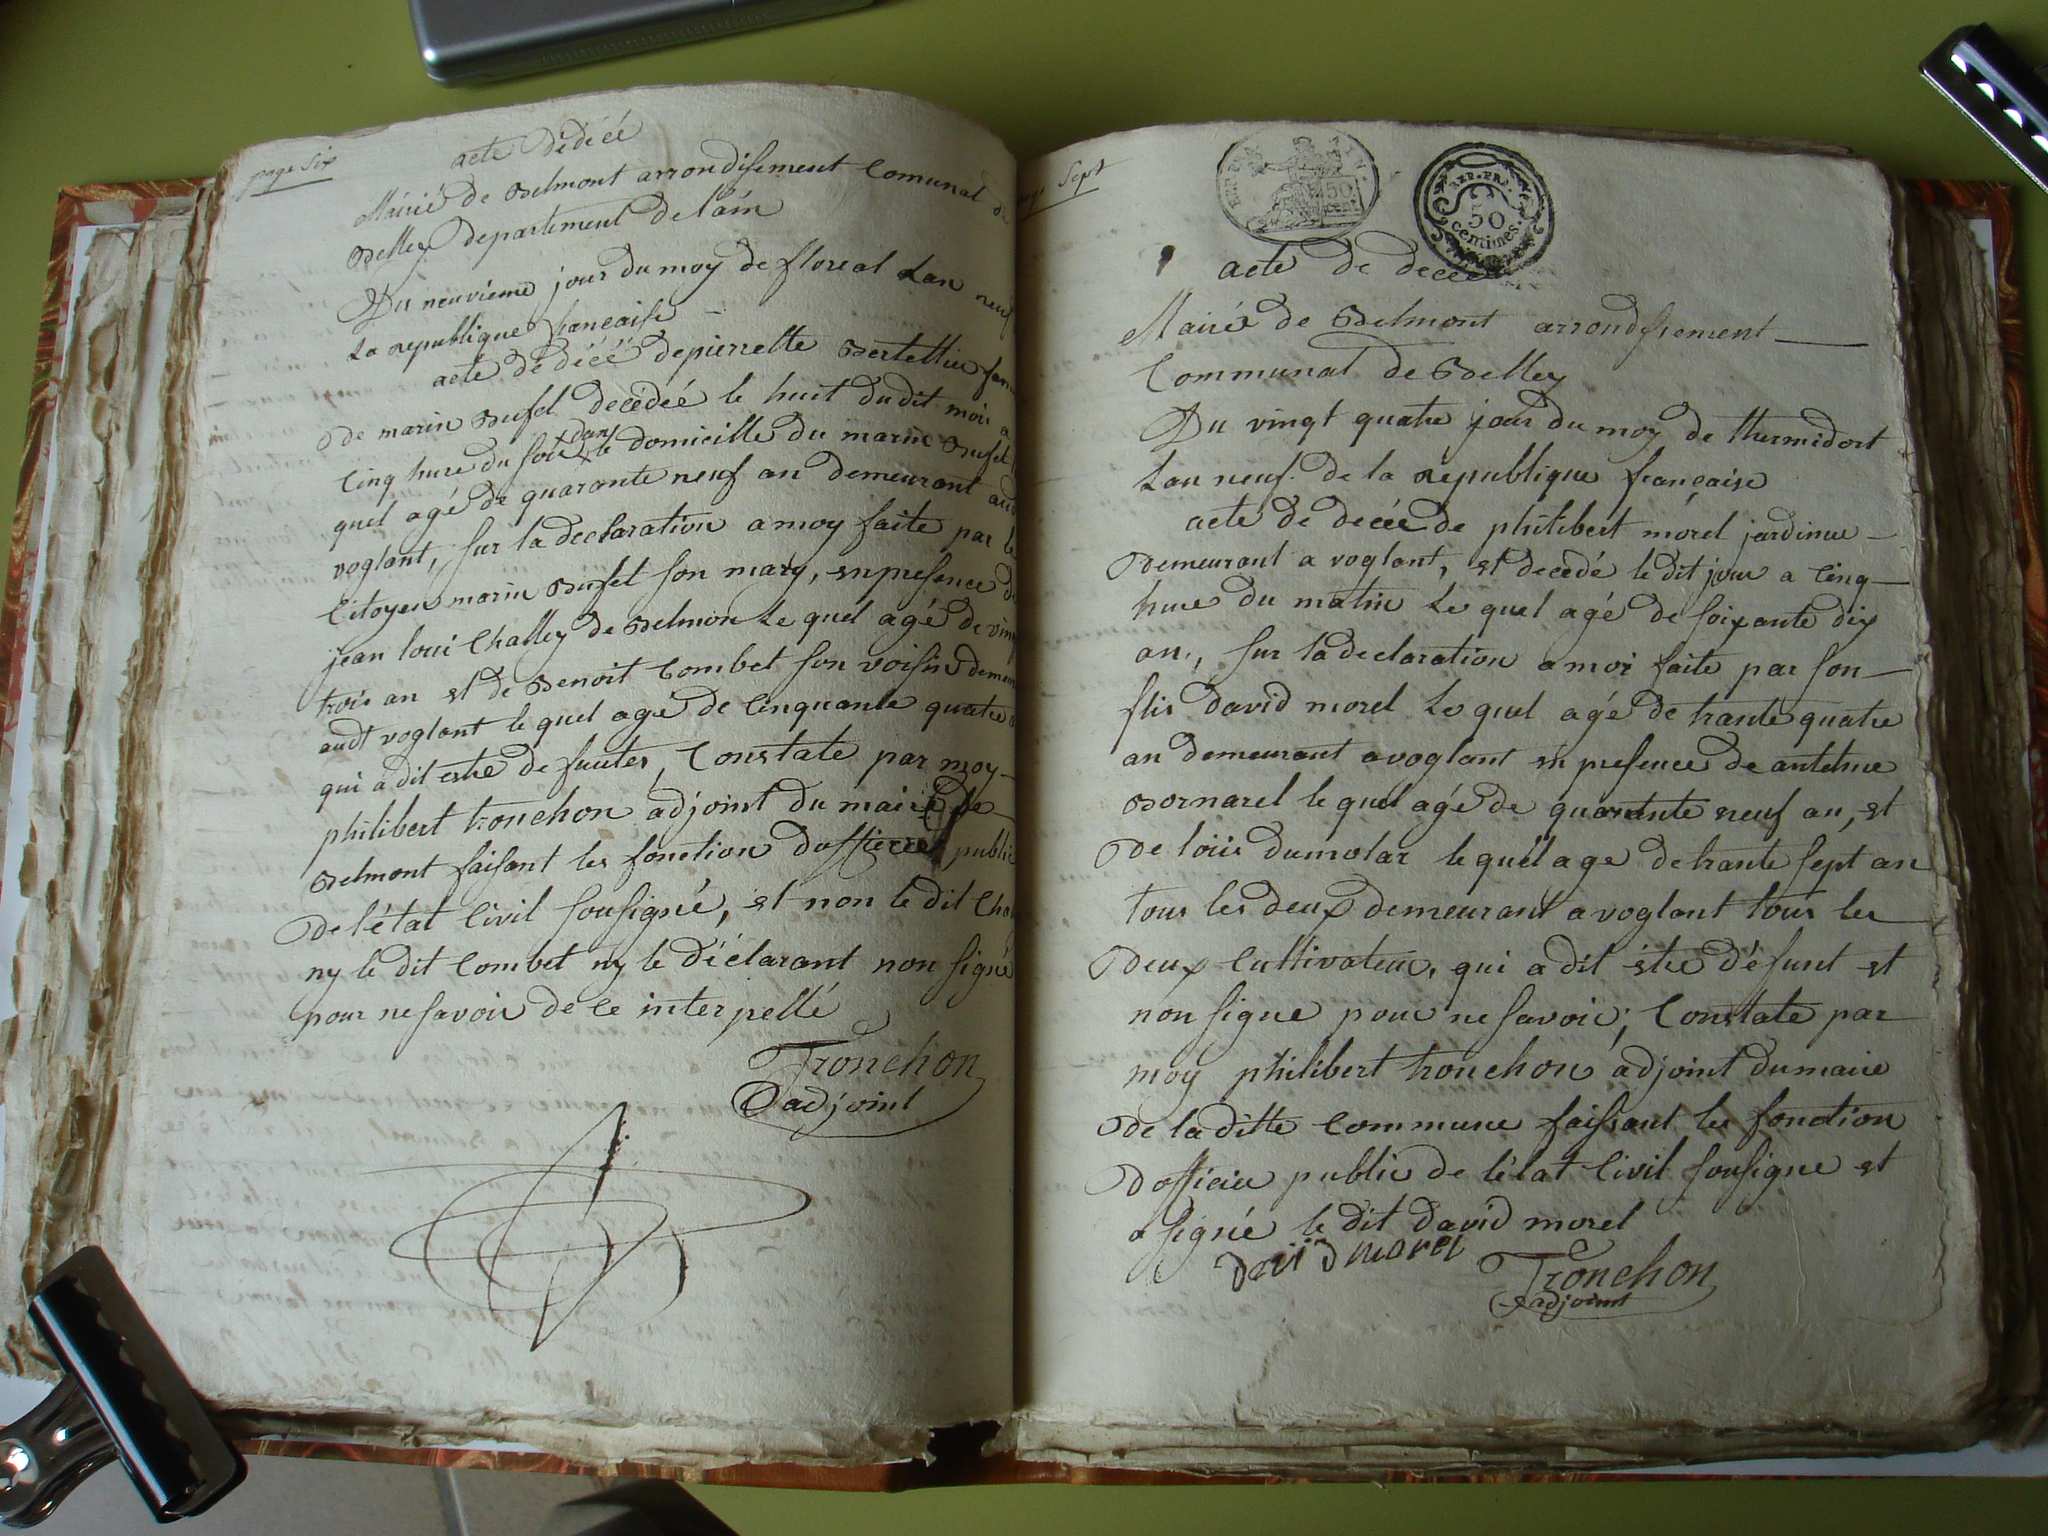 page Six
acte dédécé
Mairie de Belmont arrondisement Comunal de
Belley departement de lain
Du neuvieme jour du moy de floreal Lan neuf
La republique francaise
acte de décé de pierrette Bertettier
de marin Bufet decedeé le huit dudit moin a
Cinq hure du soir dans le domicille du marin Bufet
quel agé de quarante neuf an demeurant aud
voglant, sur la declaration a moy faite par le
Citoyen marin Bufet son mary, en presence de
jean loui Challey de Belmon Le quel agé de vingt
trois an et de Benoit Combet son voisin
audt voglant le quel age de Cinquante quatre
qui a dit estre de funtes, Constate par moy
philibert tronchon adjoint du maire de
Belmont faisant les fonction dofficier public
de létat Civil sousigné, et non le dit
ny le dit Combet ny le déclarant non signé
pour ne savoir de ce inter pellé
Tronchon
adjoint
Sept
50
REP. FRA.
50
centimes.
acte de decee
Mairie de Belmont arrondissement
Communal de Belley
Du vingt quatre jour du moy de thermidort
Lan neuf de la republique française
acte de decée de philibert morel jardinie
demeurant a voglant, et decedé le dit jour a Cinq
hure du matin Le quel agé de soixante dix
an, sur la declaration a moi faite par son
flis david morel Le quel agé de trante quatre
an demeurant a voglant en presence de antelme
Bornarel le quel agé de quarante neuf an, et
de loiis dumolar le quél age de trante sept an
tous les deux demeurant a voglant tous les
deux Cultivateur, qui a dit estre défunt et
non signe pour ne savoir; Constate par
moy philibert tronchon adjoint du maire
de la ditte Commune faissant les fonction
dofficier public de létat Civil sousigne et
a signé le dit david morel
david morel
Tronchon
adjoint